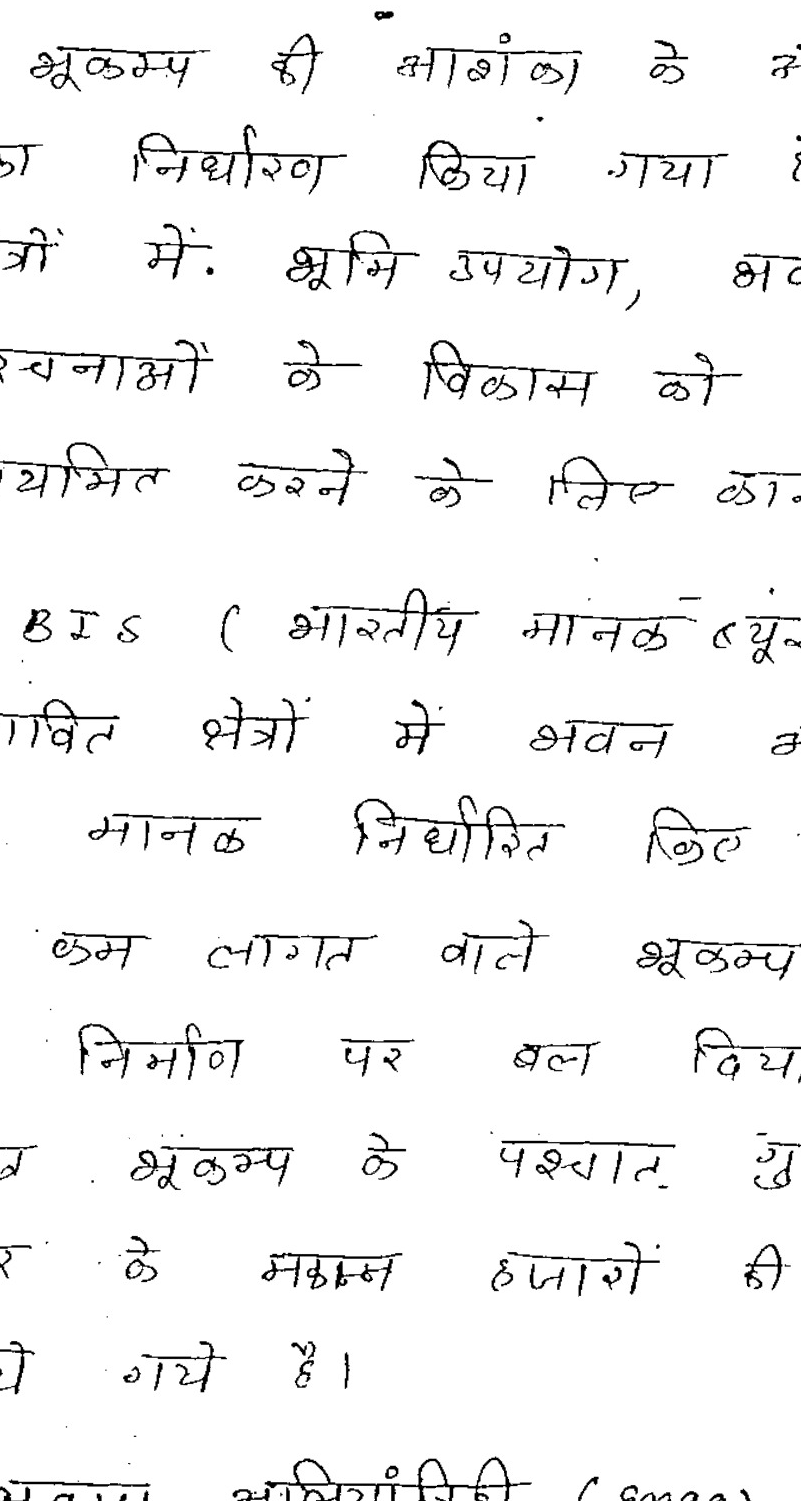 भूकम्प की आशंका के
निर्धारण किया गया
त्रों में. भूमि उपयोग, भव
रचनाओं के विकास को
यमित करने के लिए का
BIS ( भारतीय मानक ब्यू
ावित क्षेत्रों में भवन
मानक निर्धारित किए
कम लागत वाले भूकम्प
निर्माण पर बल दिया
भूकम्प के पश्चात गु
र के मकान हजारों की
ये गये है।